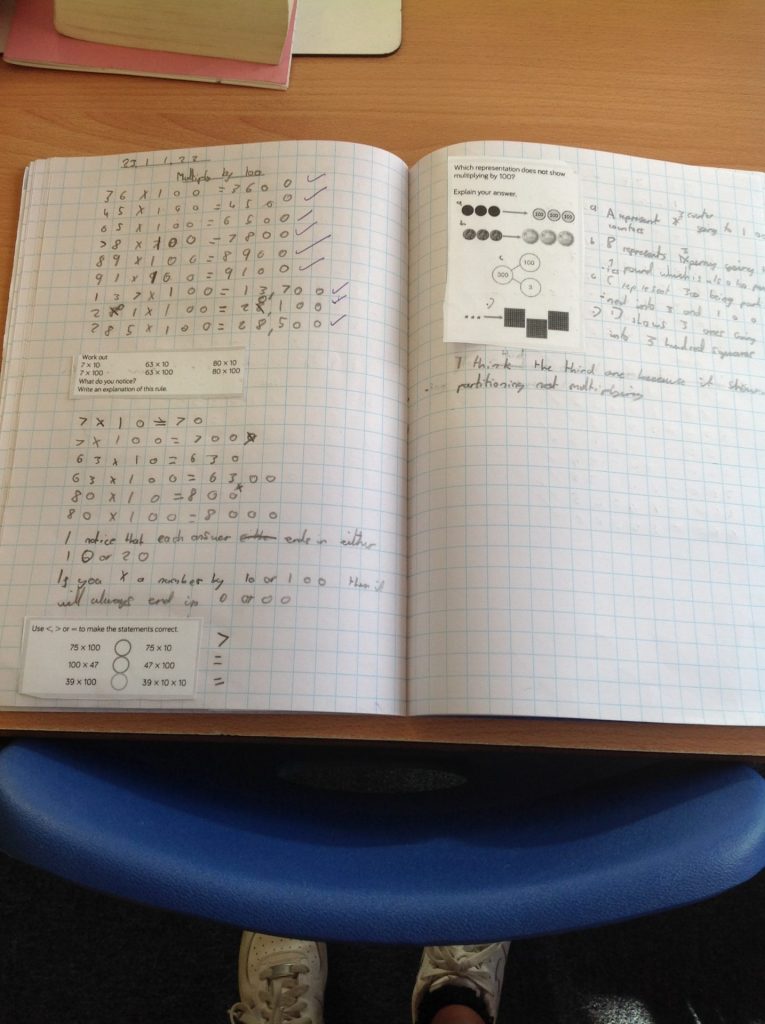 23.11.22
Multiply by 100
36 x 100 = 3600
45 x 100 = 4500
65 x 100 = 6500
78 x 100 = 7800
89 x 100 = 8900
91 x 100 = 9100
137 x 100 = 13,700
x 100 =
285 x 100 = 28,500
Work out
7 × 10 63 × 10 80 × 10
7 × 100 63 × 100 80 × 100
What do you notice?
Write an explanation of this rule.
7 x 10 = 70
7 x 100 = 700
63 x 10 = 630
63 x 100 = 6300
80 x 10 = 800
80 x 100 = 8000
I notice that each answer ends in either
10 or 20
If you x a number by 10 or 100 then it
will always end in 0 or 00
Use <, > or = to make the statements correct.
75 × 100 75 × 10 >
100 × 47 47 × 100 =
39 × 100 39 × 10 × 10 =
Which representation does not show
multiplying by 100?
Explain your answer.
a
100 100 100
b
c
300
100
3
a A represent 3 counter going to 100
counters
b B represents 3
1 pound which is also
c C represent 300 being part
ined into 3 and 100
D shows 3 ones going
into 3 hundred squares
I think the third one because it
partitioning not multiplying